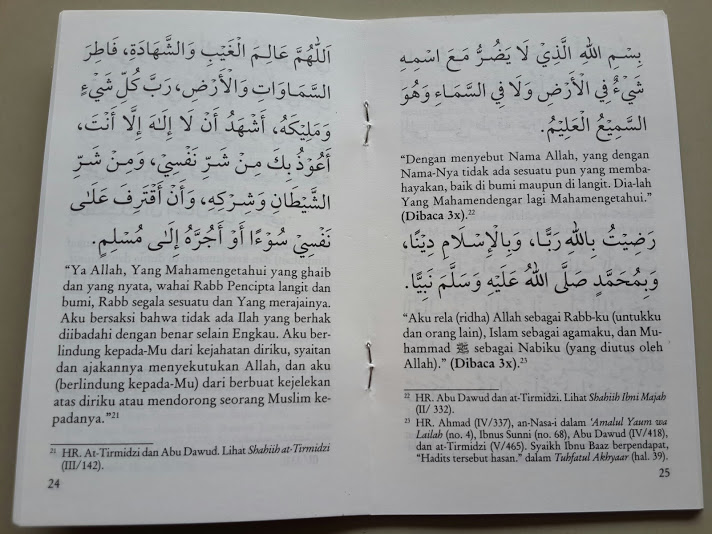 اَللّٰهُمَّ عَالِمَ الْغَيْبِ وَالشَّهَادَةِ، فَاطِرَ
السَّمَاوَاتِ وَالْأَرْضِ، رَبَّ كُلِّ شَيْءٍ
وَمَلِيْكَهُ، أَشْهَدُ أَنْ لَا إِلٰهَ إِلَّا أَنْتَ،
أَعُوْذُ بِكَ مِنْ شَرِّ نَفْسِيْ، وَمِنْ شَرِّ
الشَّيْطَانِ وَشِرْكِهِ، وَأَنْ أَقْتَرِفَ عَلَى
نَفْسِيْ سُوْءًا أَوْ أَجُرَّهُ إِلَى مُسْلِمٍ.
“Ya Allah, Yang Mahamengetahui yang ghaib
dan yang nyata, wahai Rabb Pencipta langit dan
bumi, Rabb segala sesuatu dan Yang merajainya.
Aku bersaksi bahwa tidak ada Ilah yang berhak
diibadahi dengan benar selain Engkau. Aku ber-
lindung kepada-Mu dari kejahatan diriku, syaitan
dan ajakannya menyekutukan Allah, dan aku
(berlindung kepada-Mu) dari berbuat kejelekan
atas diriku atau mendorong seorang Muslim ke-
padanya.”21
21 HR. At-Tirmidzi dan Abu Dawud. Lihat Shahiih at-Tirmidzi
(III/142).
24
بِسْمِ اللهِ الَّذِيْ لَا يَضُرُّ مَعَ اسْمِهِ
شَيْءٌ فِي الْأَرْضِ وَلَا فِي السَّمَاءِ وَهُوَ
السَّمِيْعُ الْعَلِيْمُ.
“Dengan menyebut Nama Allah, yang dengan
Nama-Nya tidak ada sesuatu pun yang memba-
hayakan, baik di bumi maupun di langit. Dia-lah
Yang Mahamendengar lagi Mahamengetahui.”
(Dibaca 3x).22
رَضِيْتُ بِاللهِ رَبًّا، وَبِالْإِسْلَامِ دِيْنًا،
وَبِمُحَمَّدٍ صَلَّى اللهُ عَلَيْهِ وَسَلَّمَ نَبِيًّا.
“Aku rela (ridha) Allah sebagai Rabb-ku (untukku
dan orang lain), Islam sebagai agamaku, dan Mu-
hammad ﷺ sebagai Nabiku (yang diutus oleh
Allah).” (Dibaca 3x).23
22 HR. Abu Dawud dan at-Tirmidzi. Lihat Shahiih Ibni Majah
(II/ 332).
23 HR. Ahmad (IV/337), an-Nasa-i dalam ‘Amalul Yaum wa
Lailah (no. 4), Ibnus Sunni (no. 68), Abu Dawud (IV/418),
dan at-Tirmidzi (V/465). Syaikh Ibnu Baaz berpendapat,
“Hadits tersebut hasan.” dalam Tuhfatul Akhyaar (hal. 39).
25